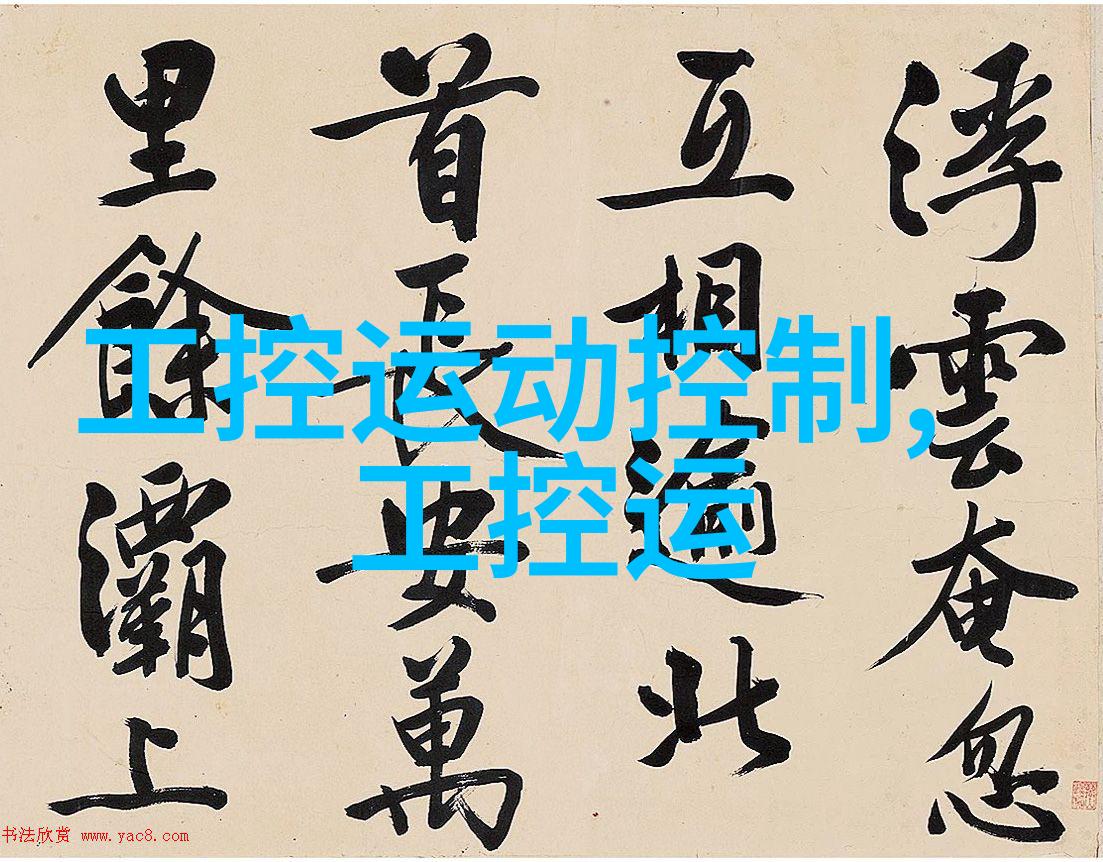 浮雲奄忽
互相逾北
首長安萬
里餘灞上
工控运动控制,
工控运
书法欣赏 www.yac8.com